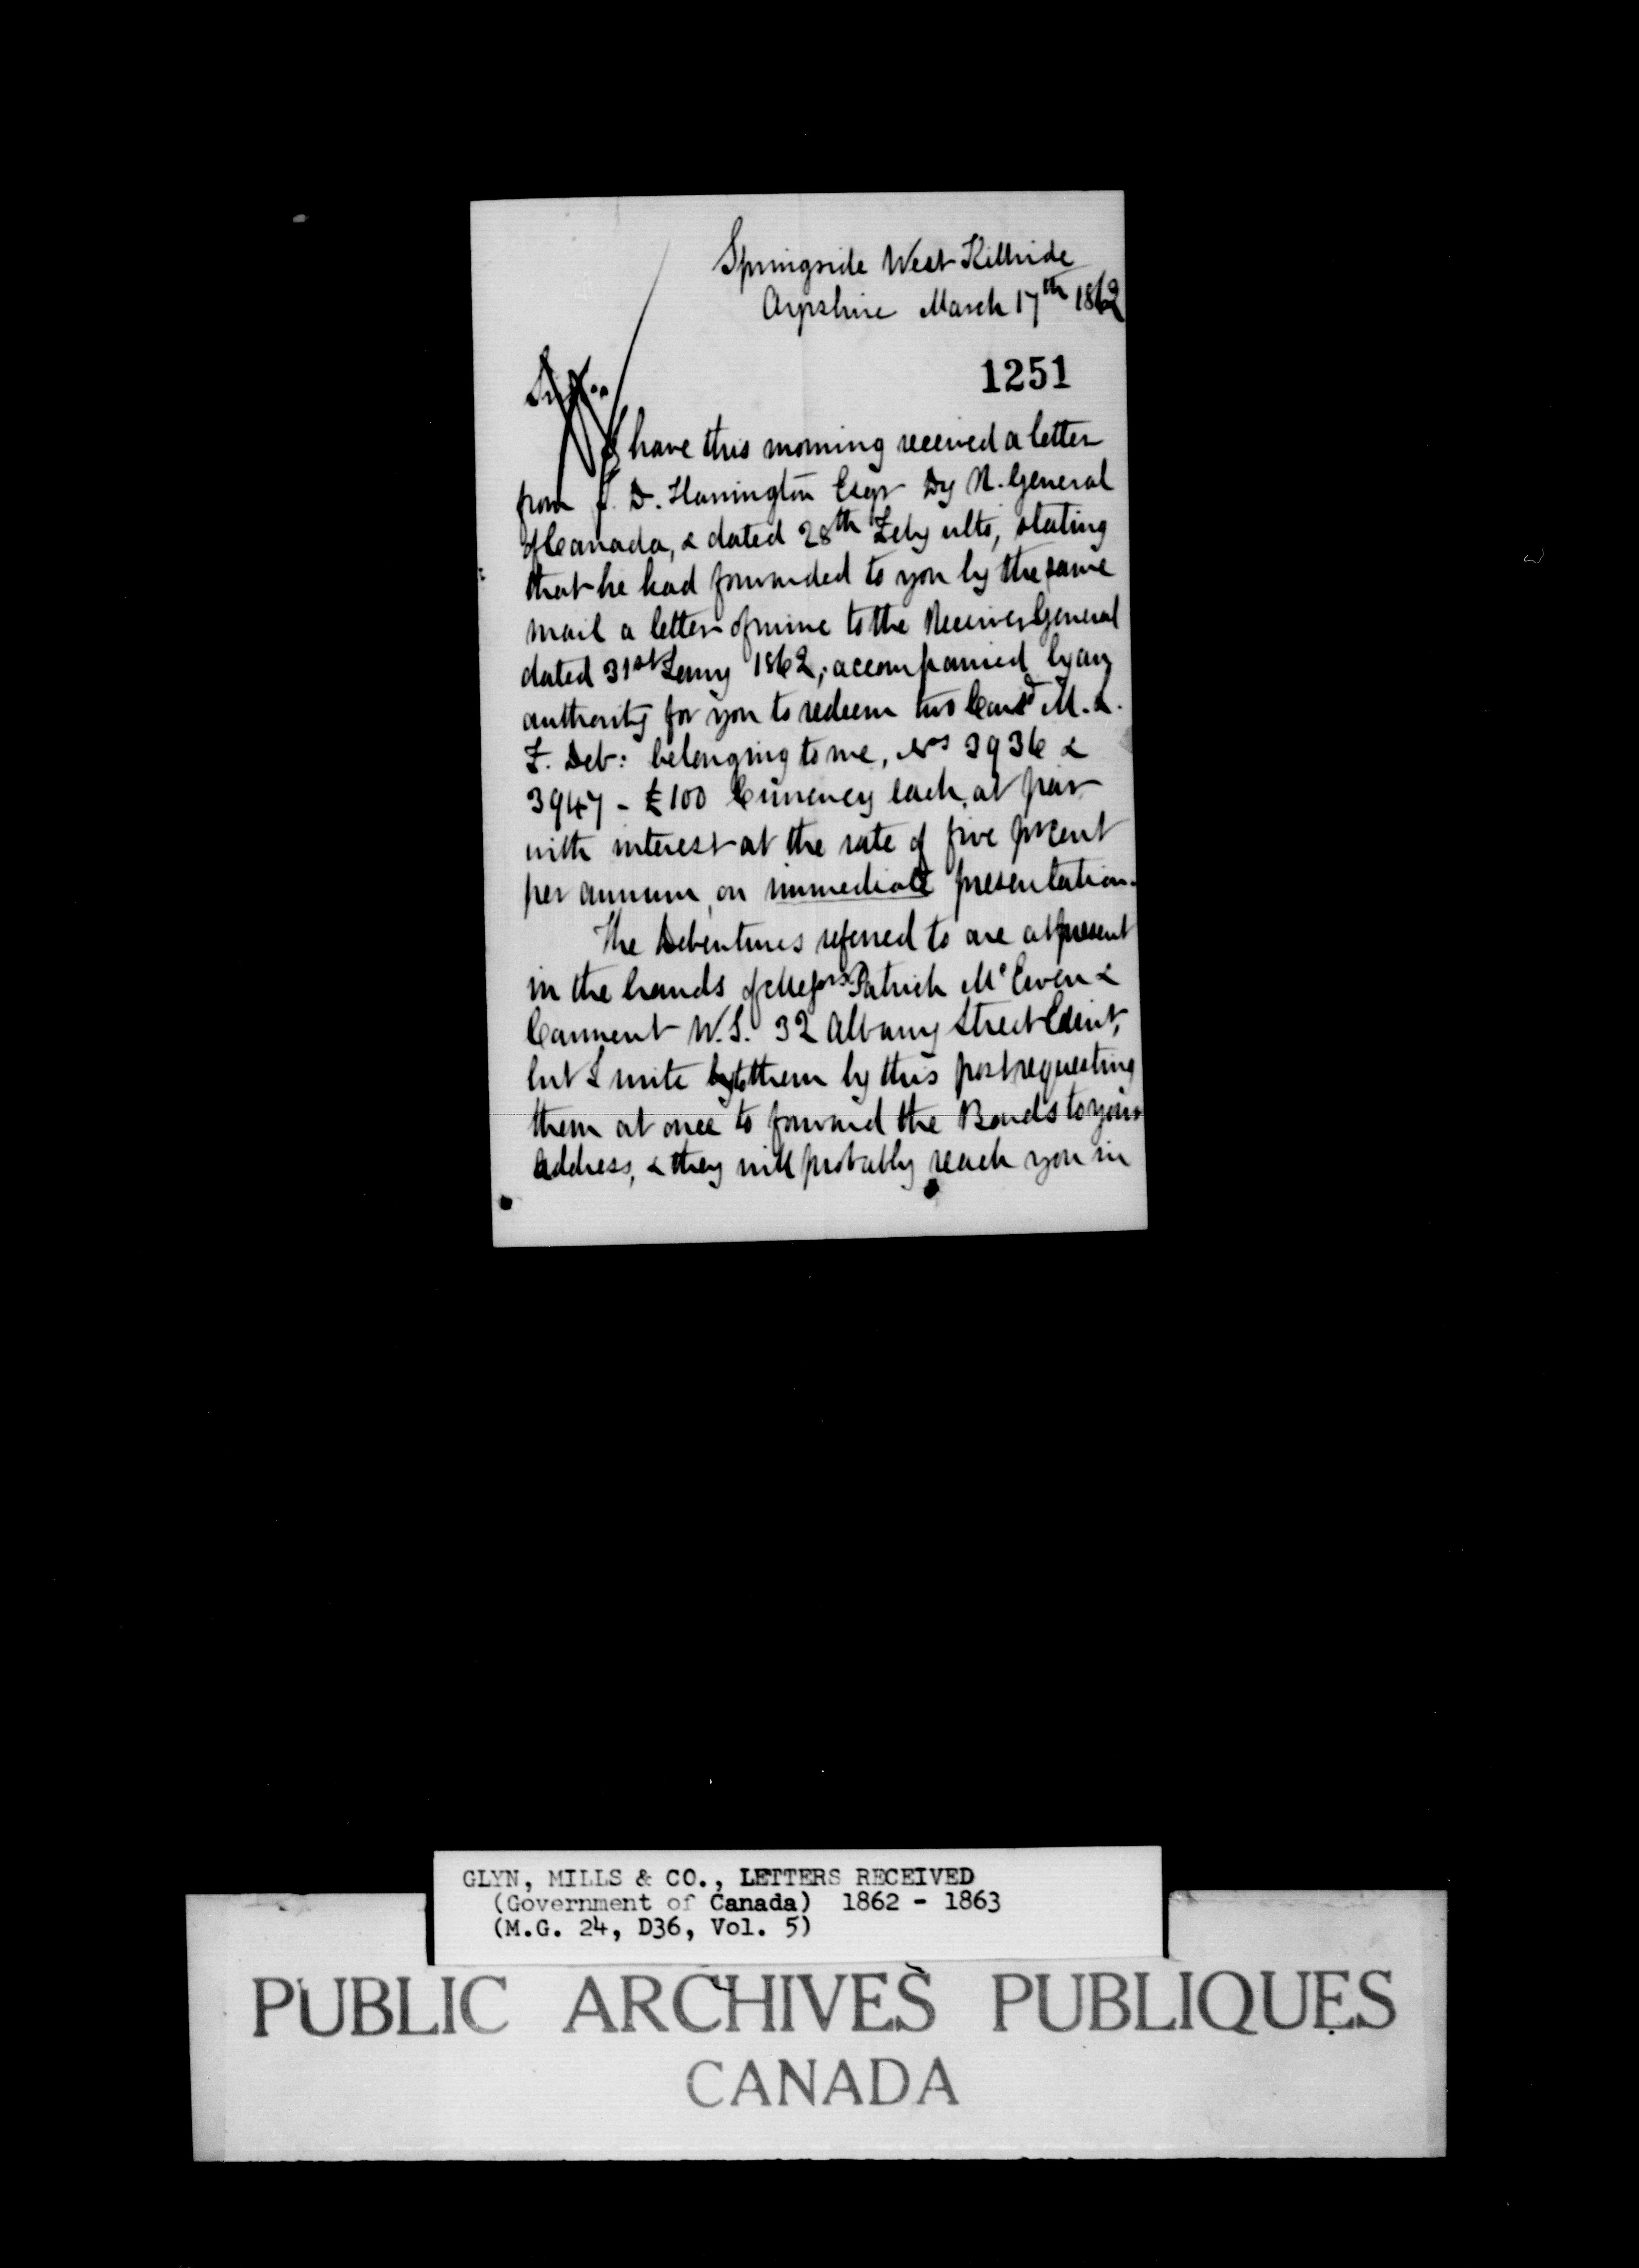 Springside West Kilbride
Ayrshire March 17th 1862
1251
Sir..
I have this morning received a letter
from J. D. Harrington Esqr Dy R. General
of Canada, & dated 28th Feby ulto, stating
that he had forwarded to you by the same
mail a letter of mine to the Receiver General
dated 31st Jany 1862, accompanied by an
authority for you to redeem two Cand M. L.
F. Deb: belonging to me, Nos 3936 &
3947 - £100 Currency each, at par
with interest at the rate of five pr cent
per annum, on immediate presentation.
The Debentures referred to are at present
in the hands of Messrs Patrick McEwen &
Carment W.S. 32 Albany Street Edinr,
but I write to them by this post requesting
them at once to forward the Bonds to your
address, & they will probably reach you in
GLYN, MILLS & CO., LETTERS RECEIVED
(Government of Canada) 1862 - 1863
(M.G. 24, D36, Vol. 5)
PUBLIC ARCHIVES PUBLIQUES
CANADA